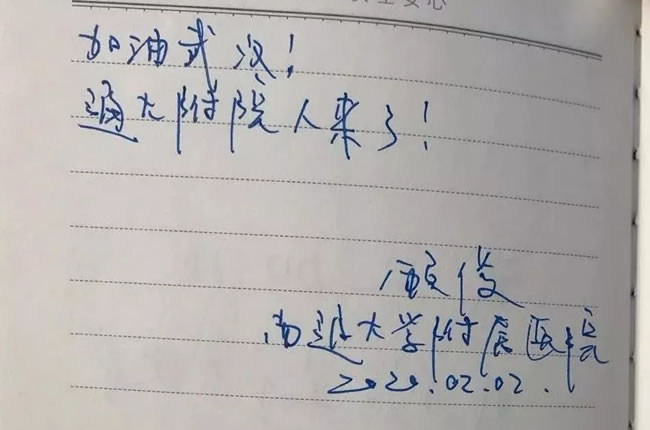 加油武汉！
通大附院人来了！
顾俊
南通大学附属医院
2020.02.02.